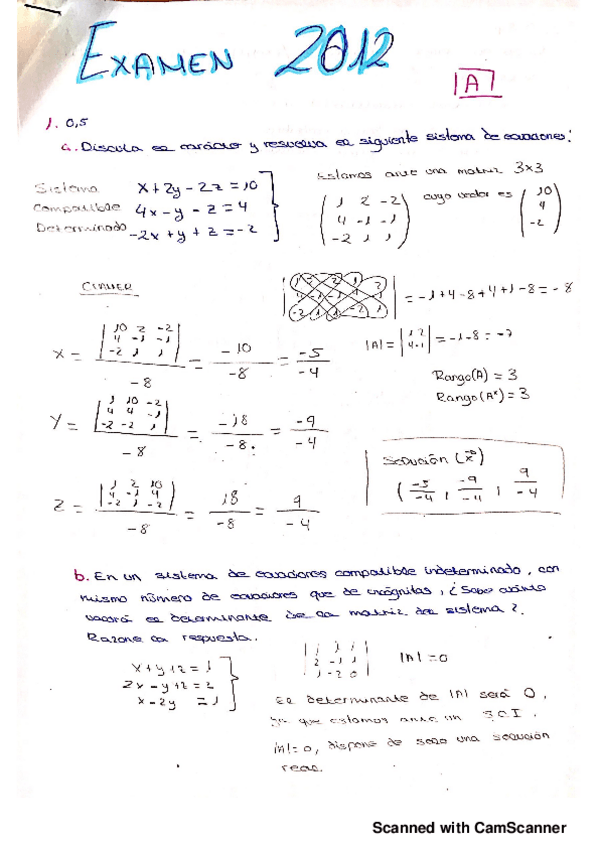 EXAMEN 2012
A
1. 0,5
a. Discuta el carácter y resuelva el siguiente sistema de ecuaciones:
Sistema Compatible Determinado
x+2y-2z=10
4x-y-z=4
-2x+y+z=-2
Estamos ante una matriz 3x3
cuyo vector es
(1 2 -2
4 -1 -1
-2 1 1)
(10
4
-2)
= -1+4-8+4+1-8 = -8
CRAMER
|A| = |1 2
4 -1| = -1-8 = -7
Rango(A) = 3
Rango(A*) = 3
x = |10 2 -2
4 -1 -1
-2 1 1| / -8 = -10/-8 = -5/-4
y = |1 10 -2
4 4 -1
-2 -2 1| / -8 = -18/-8 = -9/-4
z = |1 2 10
4 -1 4
-2 1 -2| / -8 = 18/-8 = 9/-4
Solución
(-5/-4, -9/-4, 9/-4)
b. En un sistema de ecuaciones compatible indeterminado, con
mismo número de ecuaciones que de incógnitas, ¿Sabe cuánto
valdrá el determinante de la matriz del sistema?
Razone la respuesta.
x+y+z=1
2x-y+z=2
x-2y =1
|1 1 1
2 -1 1
1 -2 0| |A|=0
El determinante de |A| será 0,
ya que estamos ante un S.C.I.
|A|=0, dispone de solo una solución
real.
Scanned with CamScanner